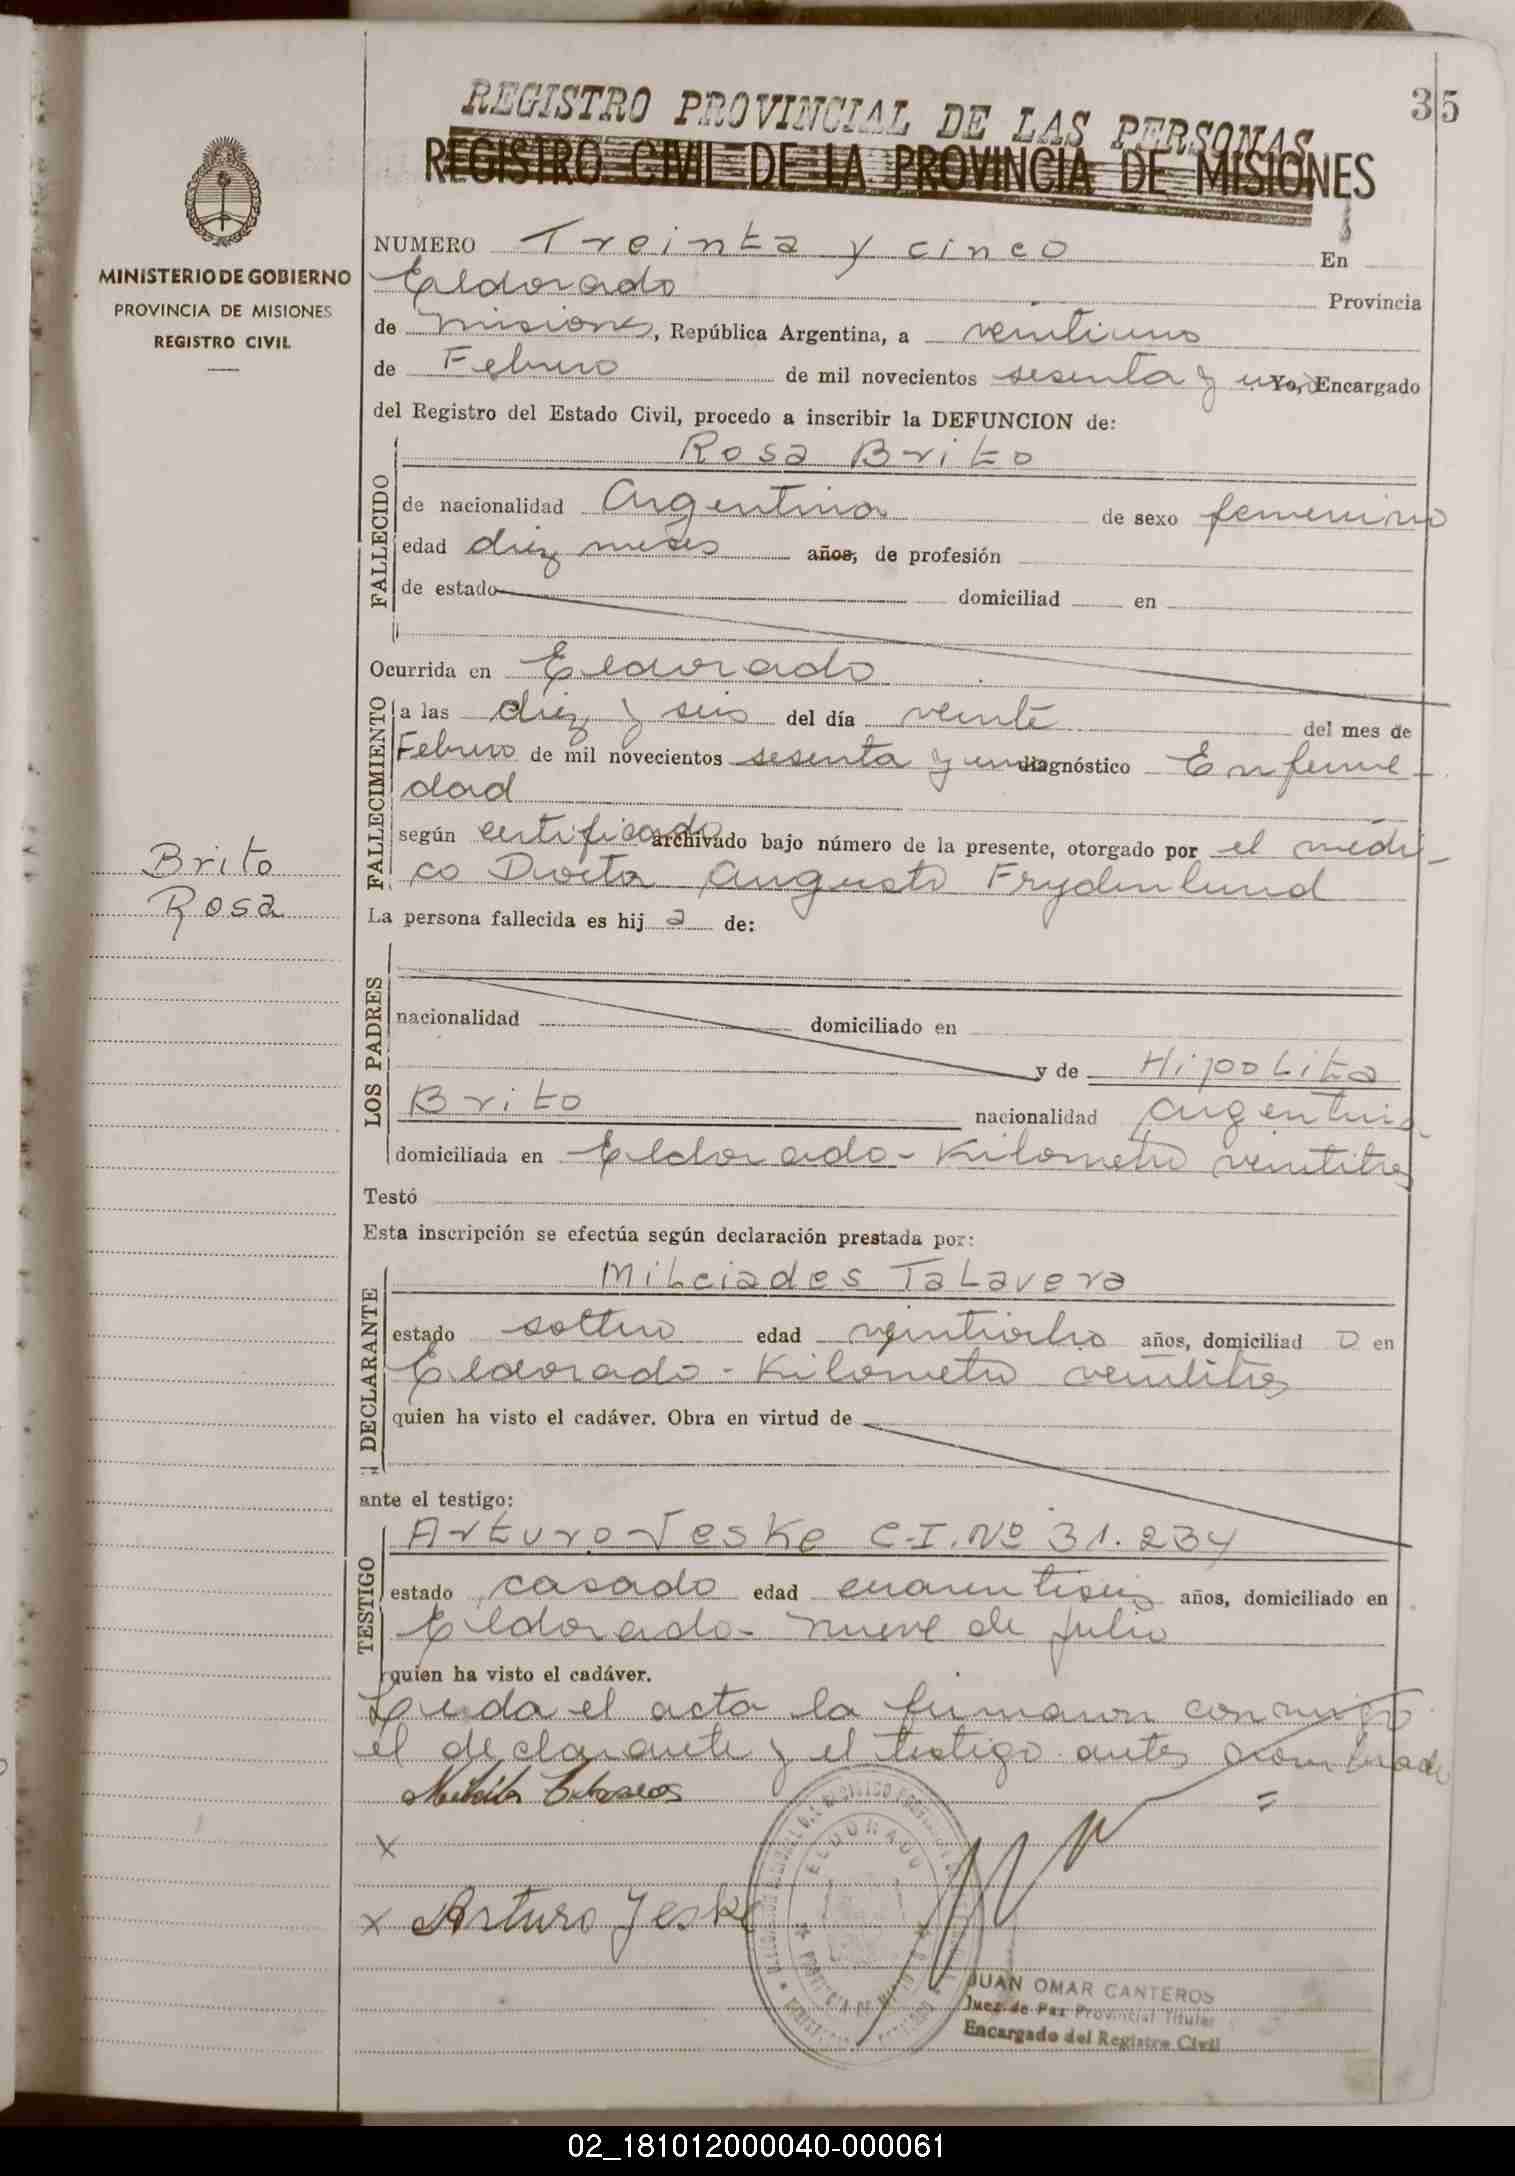 35
REGISTRO PROVINCIAL DE LAS PERSONAS
REGISTRO CIVIL DE LA PROVINCIA DE MISIONES
MINISTERIO DE GOBIERNO
PROVINCIA DE MISIONES
REGISTRO CIVIL
NUMERO Treinta y cinco En
Eldorado Provincia
de Misiones, República Argentina, a veintiuno
de Febrero de mil novecientos sesenta y uno Yo, Encargado
del Registro del Estado Civil, procedo a inscribir la DEFUNCION de:
FALLECIDO
Rosa Brito
de nacionalidad Argentina de sexo femenino
edad diez meses años, de profesión
de estado domiciliad en
Ocurrida en Eldorado
FALLECIMIENTO
a las diez y seis del día veinte del mes de
Febrero de mil novecientos sesenta y uno diagnóstico Enferme-
dad
según certificado archivado bajo número de la presente, otorgado por el médi-
co Doctor Augusto Frydenlund
Brito
Rosa
La persona fallecida es hij a de:
LOS PADRES
nacionalidad domiciliado en
y de Hipolita
Brito nacionalidad argentina
domiciliada en Eldorado - Kilometro veintitres
Testó
Esta inscripción se efectúa según declaración prestada por:
DECLARANTE
Milciades Talavera
estado soltero edad veintiocho años, domiciliad o en
Eldorado - Kilometro veintitres
quien ha visto el cadáver. Obra en virtud de
ante el testigo:
TESTIGO
Arturo Jeske C.I. Nº 31.234
estado casado edad cuarentiseis años, domiciliado en
Eldorado - nueve de julio
quien ha visto el cadáver.
Leida el acta la firmaron conmigo
el declarante y el testigo antes nombrado
=
x
x Arturo Jeske
ELDORADO
JUAN OMAR CANTEROS
Juez de Paz Provincial Titular
Encargado del Registro Civil
02_181012000040-000061